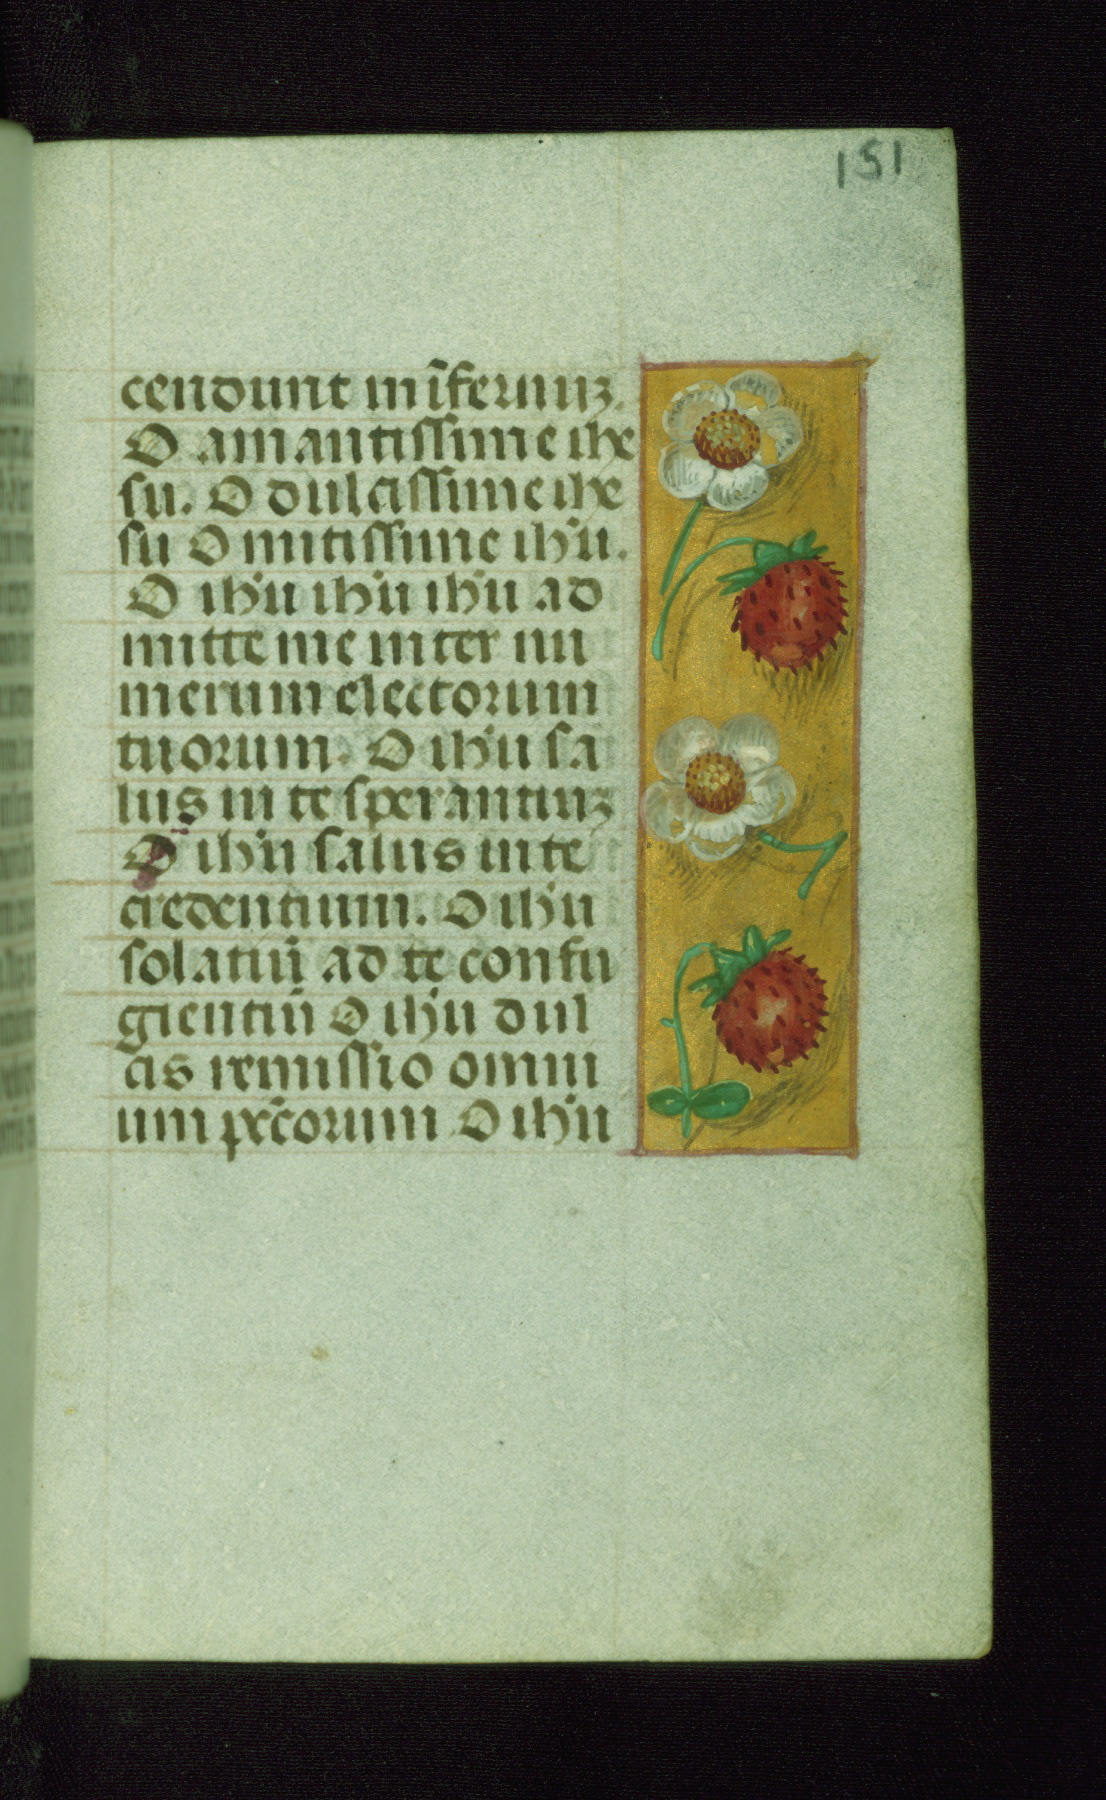 151
cendunt in īfernuꝫ.
O amantissime ihe
su. O dulcissime ihe
su O mitissime ihū.
O ihū ihū ihū ad
mitte me inter nu
merum electorum
tuorum. O ihū sa
lus in te sperantiuꝫ
O ihū salus in te
credentium. O ihū
solatiū ad te confu
gientiū O ihū dul
cis remissio omni
um pctōrum O ihū